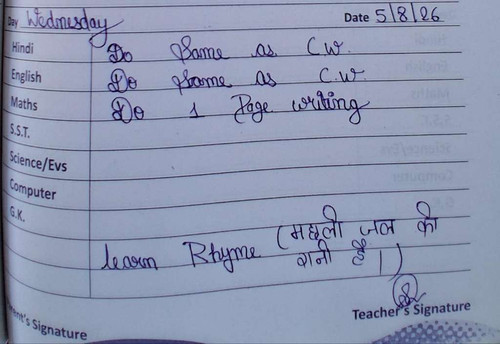 Day Wednesday Date 5/8/26
Hindi Do Same as C.W.
English Do Same as C.W.
Maths Do 1 Page writing
S.S.T.
Science/Evs
Computer
G.K.
learn Rhyme (मछली जल की
रानी है।)
Teacher's Signature
Parent's Signature